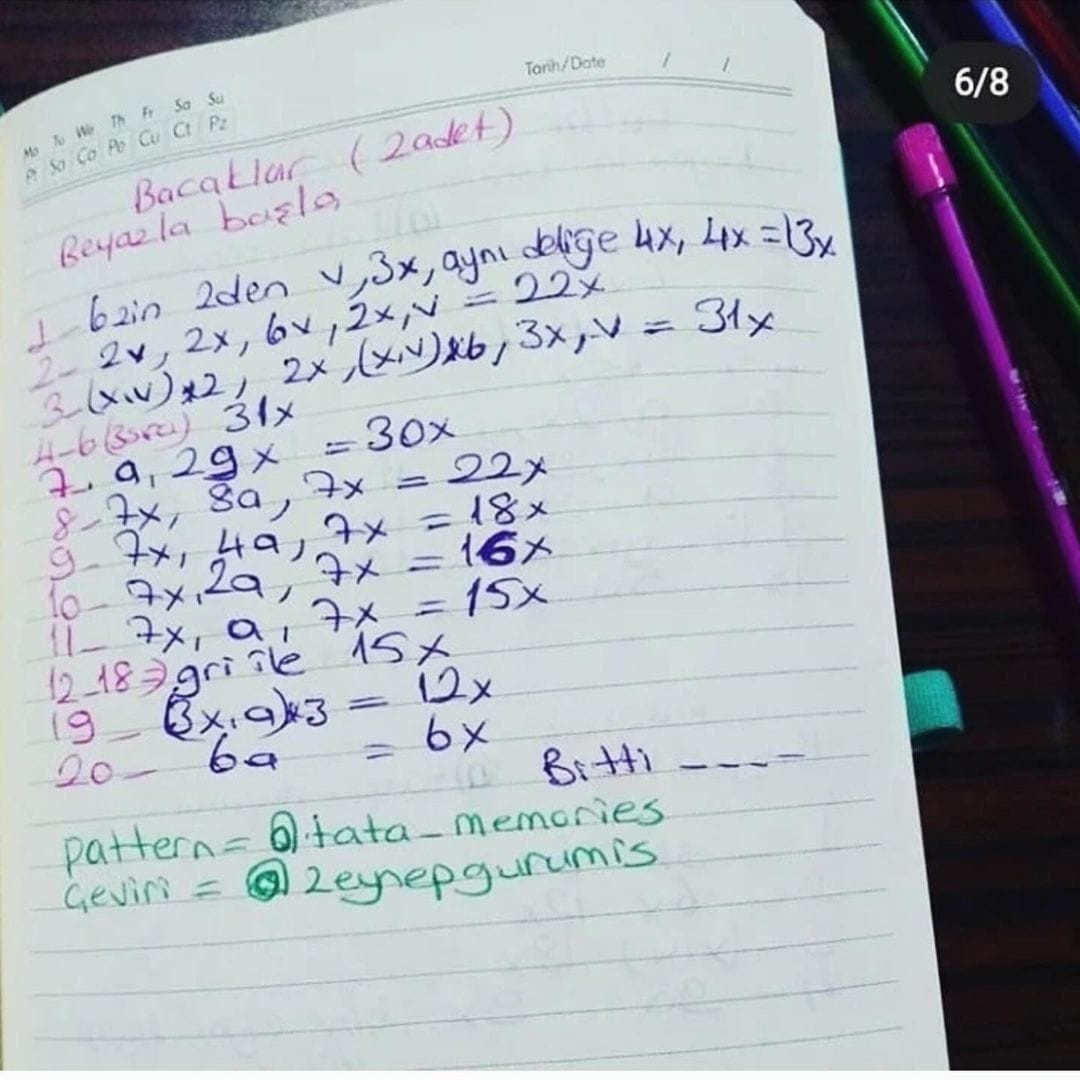 6/8
Tarih/Date / /
Mo Tu We Th Fr Sa Su
Pt Sa Ça Pe Cu Ct Pz
Bacaklar (2adet)
Beyazla başla
1- 6zin 2den v,3x, aynı deliğe 4x, 4x=13x
2- 2v, 2x, 6v, 2x, v = 22x
3- (x,v)*2, 2x, (x,v)*6, 3x, v = 31x
4-6(3sıra) 31x
7. a, 29x = 30x
8- 7x, 8a, 7x = 22x
9- 7x, 4a, 7x = 18x
10- 7x, 2a, 7x = 16x
11- 7x, a, 7x = 15x
12-18→ gri ile 15x
19- (3x,a)*3 = 12x
20- 6a = 6x
Bitti ----
pattern = @.tata_memories
Çeviri = @zeynepgurumis